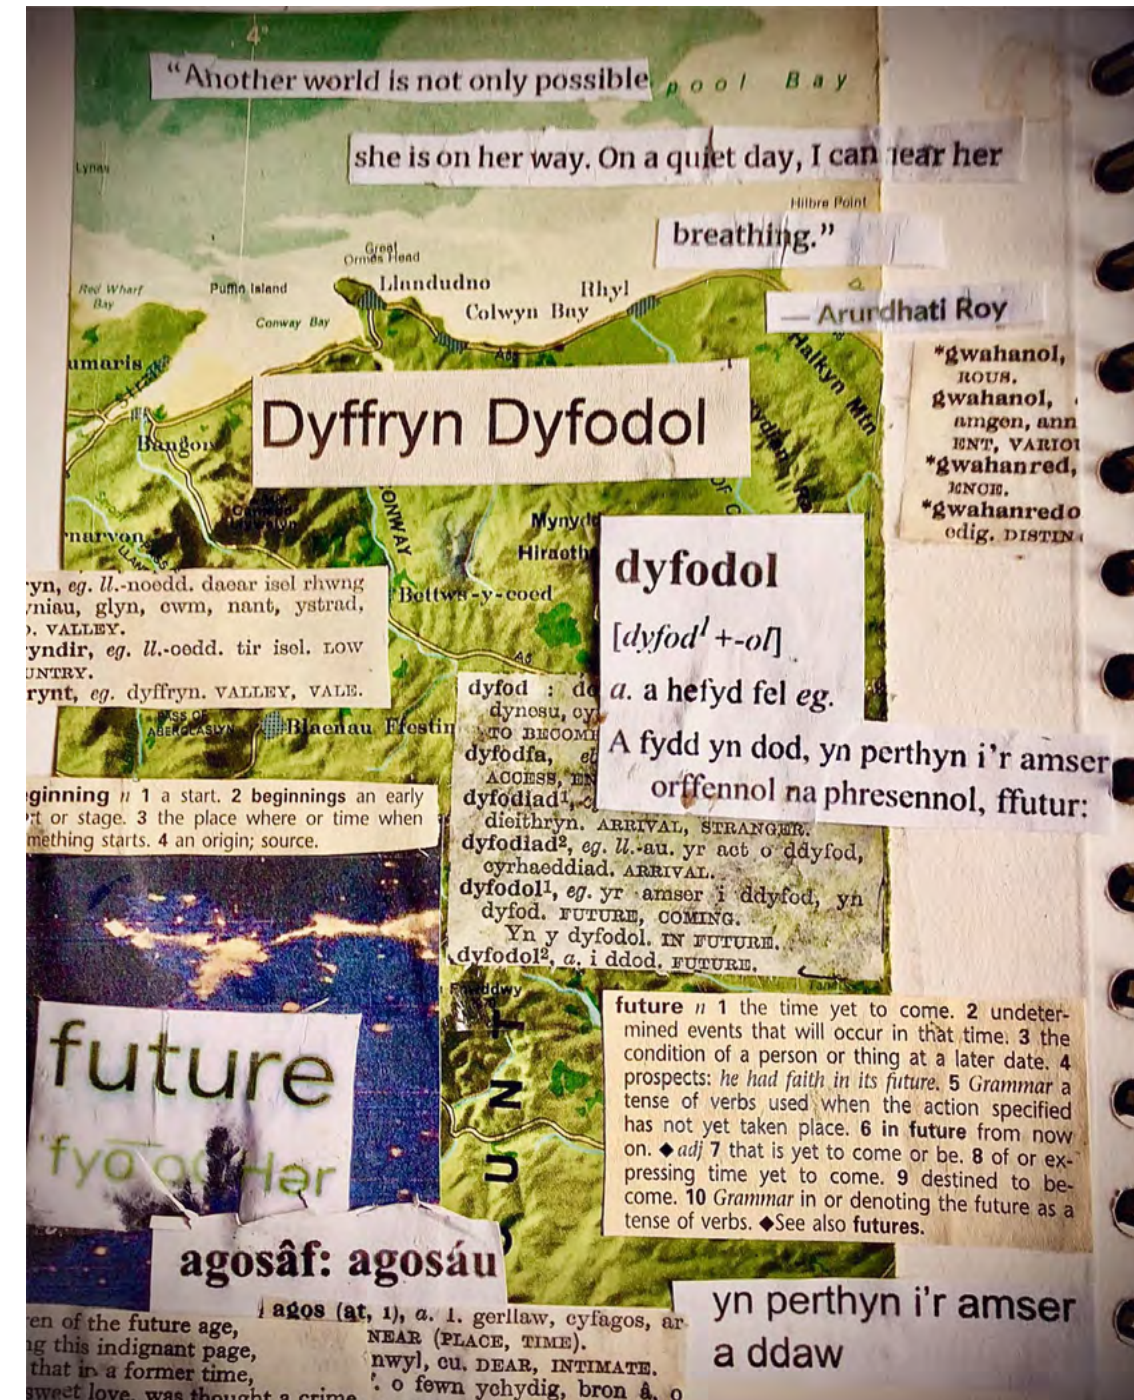 4°
"Another world is not only possible
pool Bay
she is on her way. On a quiet day, I can hear her
Lynas
Hilbre Point
breathing."
Great
Ormes Head
Red Wharf
Bay
Puffin Island
Llandudno
Rhyl
Colwyn Bay
Conway Bay
— Arundhati Roy
umaris
Halkyn Mtn
*gwahanol,
ROUS.
gwahanol,
amgen, ann
ENT, VARIOU
*gwahanred,
ENCE.
*gwahanredo
odig. DISTIN
Dyffryn Dyfodol
Bangor
CONWAY
OF C
narvon
Mynydd
Hiraeth
Bettws-y-coed
dyfodol
[dyfod¹ +-ol]
a. a hefyd fel eg.
A fydd yn dod, yn perthyn i'r amser
orffennol na phresennol, ffutur:
ryn, eg. ll.-noedd. daear isel rhwng
niau, glyn, cwm, nant, ystrad,
VALLEY.
yndir, eg. ll.-oedd. tir isel. LOW
UNTRY.
rynt, eg. dyffryn. VALLEY, VALE.
PASS OF
ABERGLASLYN
Blaenau Ffestin
dyfod : do
dynesu, cy
TO BECOME
dyfodfa, eb
ACCESS, EN
dyfodiad¹,
dieithryn. ARRIVAL, STRANGER.
dyfodiad², eg. ll.-au. yr act o ddyfod,
cyrhaeddiad. ARRIVAL.
dyfodol¹, eg. yr amser i ddyfod, yn
dyfod. FUTURE, COMING.
Yn y dyfodol. IN FUTURE.
dyfodol², a. i ddod, FUTURE.
ginning n 1 a start. 2 beginnings an early
rt or stage. 3 the place where or time when
mething starts. 4 an origin; source.
future
future n 1 the time yet to come. 2 undeter-
mined events that will occur in that time. 3 the
condition of a person or thing at a later date. 4
prospects: he had faith in its future. 5 Grammar a
tense of verbs used when the action specified
has not yet taken place. 6 in future from now
on. ◆adj 7 that is yet to come or be. 8 of or ex-
pressing time yet to come. 9 destined to be-
come. 10 Grammar in or denoting the future as a
tense of verbs. ◆See also futures.
UNT
agosâf: agosáu
agos (at, i), a. 1. gerllaw, cyfagos, ar
NEAR (PLACE, TIME).
nwyl, cu. DEAR, INTIMATE.
o fewn ychydig, bron â, o
en of the future age,
ng this indignant page,
that in a former time,
sweet love, was thought a crime
yn perthyn i'r amser
a ddaw